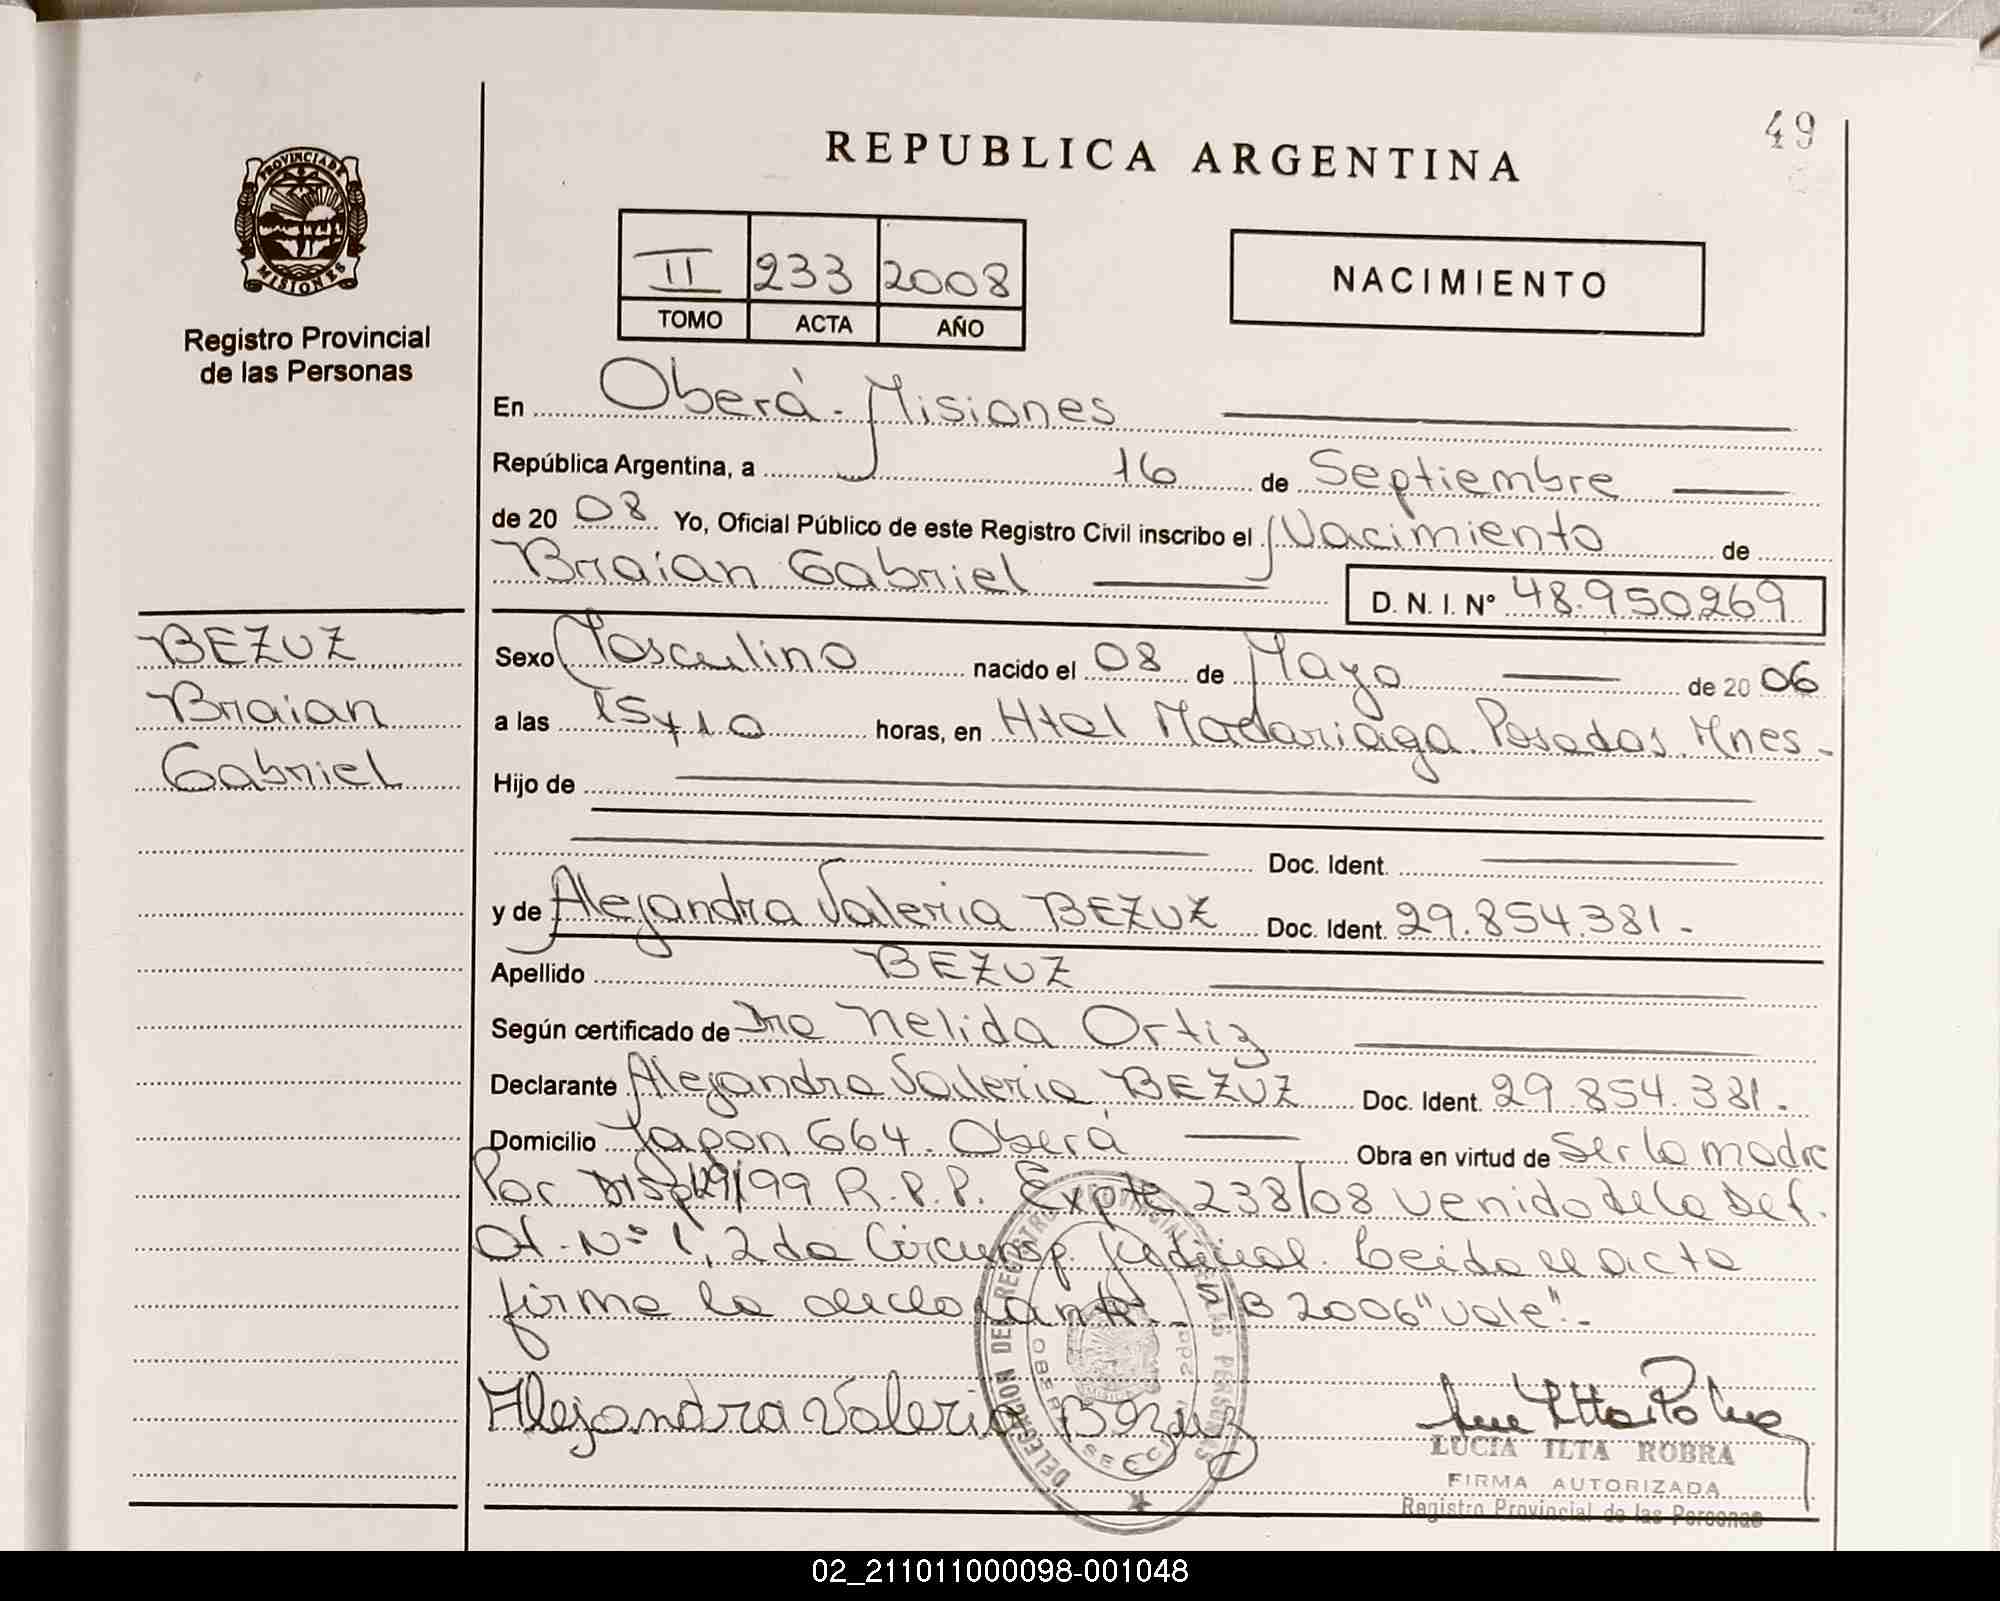 49
REPUBLICA ARGENTINA
PROVINCIA DE
MISIONES
Registro Provincial
de las Personas
II 233 2008
TOMO ACTA AÑO
NACIMIENTO
En Oberá - Misiones
República Argentina, a 16 de Septiembre
de 20 08 Yo, Oficial Público de este Registro Civil inscribo el Nacimiento de
Braian Gabriel
D. N. I. N° 48.950269
BEZUZ
Braian
Gabriel
Sexo Masculino nacido el 08 de Mayo de 20 06
a las 15 y 10 horas, en Htal Madariaga Posadas Mnes-
Hijo de
Doc. Ident.
y de Alejandra Valeria BEZUZ Doc. Ident. 29.854.381.-
Apellido BEZUZ
Según certificado de Dra Nelida Ortiz
Declarante Alejandra Valeria BEZUZ Doc. Ident. 29.854.381.
Domicilio Japon 664. Oberá Obra en virtud de Ser la madre
Por Disp 49/99 R.P.P. Expte 238/08 venido de la Def.
Of. N° 1, 2da Circunsp. Judicial. Leida el acta
firma la declarante. S/B 2006 "Vale".-
Alejandra Valeria Bezuz
DELEGACION DEL REGISTRO PROVINCIAL DE LAS PERSONAS
OBERA SECCION 2da
LUCIA ILTA ROBRA
FIRMA AUTORIZADA
Registro Provincial de las Personas
02_211011000098-001048